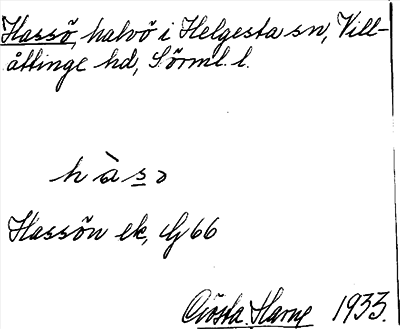 Hassö, halvö i Helgesta sn, Vill-
åttinge hd, Sörml. l.
hàsə
Hassön ek, 66
Gösta 1933.